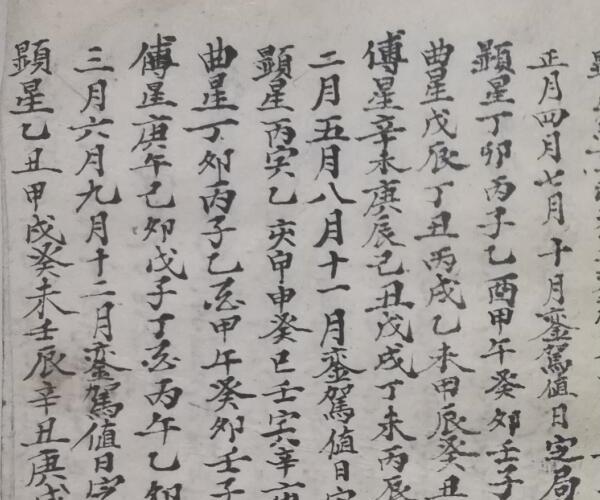 正月四月七月十月銮駕值日定局
顯星丁卯丙子乙酉甲午癸卯壬子
曲星戊辰丁丑丙戌乙未甲辰癸丑
傅星辛未庚辰己丑戊戌丁未丙辰
二月五月八月十一月銮駕值日定
顯星丙寅乙亥甲申癸巳壬寅辛亥
曲星丁卯丙子乙酉甲午癸卯壬子
傅星庚午己卯戊子丁酉丙午乙卯
三月六月九月十二月銮駕值日定
顯星乙丑甲戌癸未壬辰辛丑庚戌